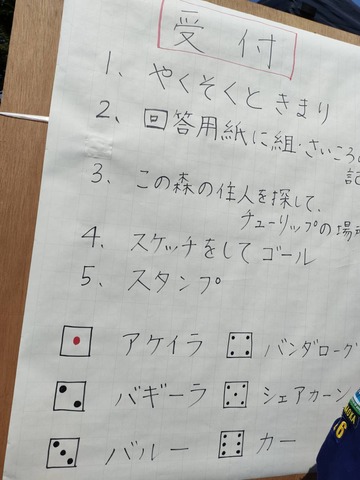 受付
1、やくそくときまり
2、回答用紙に組・さいころ
記
3、この森の住人を探して、
チューリップの場
4、スケッチをしてゴール
5、スタンプ
アケイラ バンダローグ
バギーラ シェアカーン
バルー カー